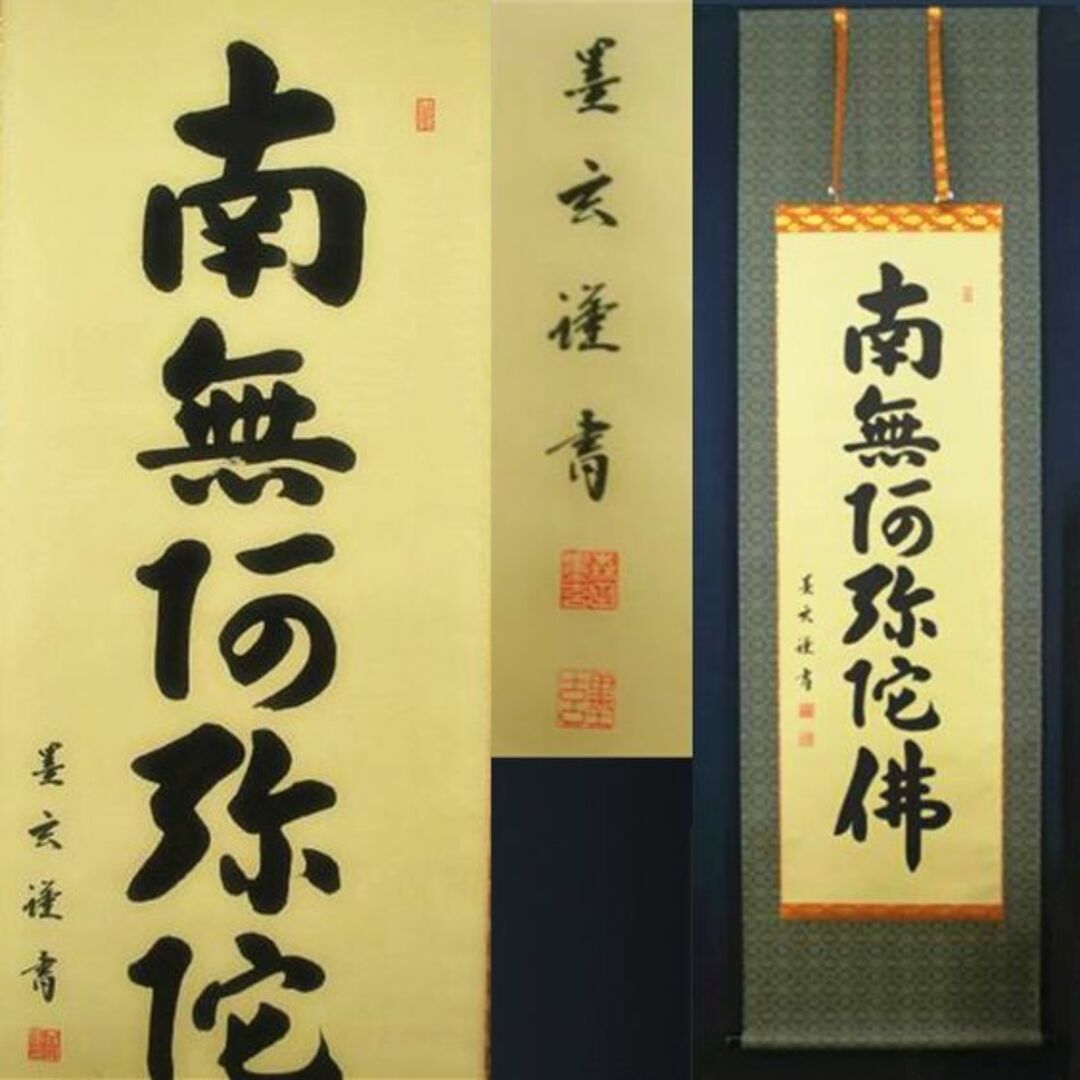 南無阿弥陀
墨玄謹書
墨玄謹書
南無阿弥陀佛
墨玄謹書